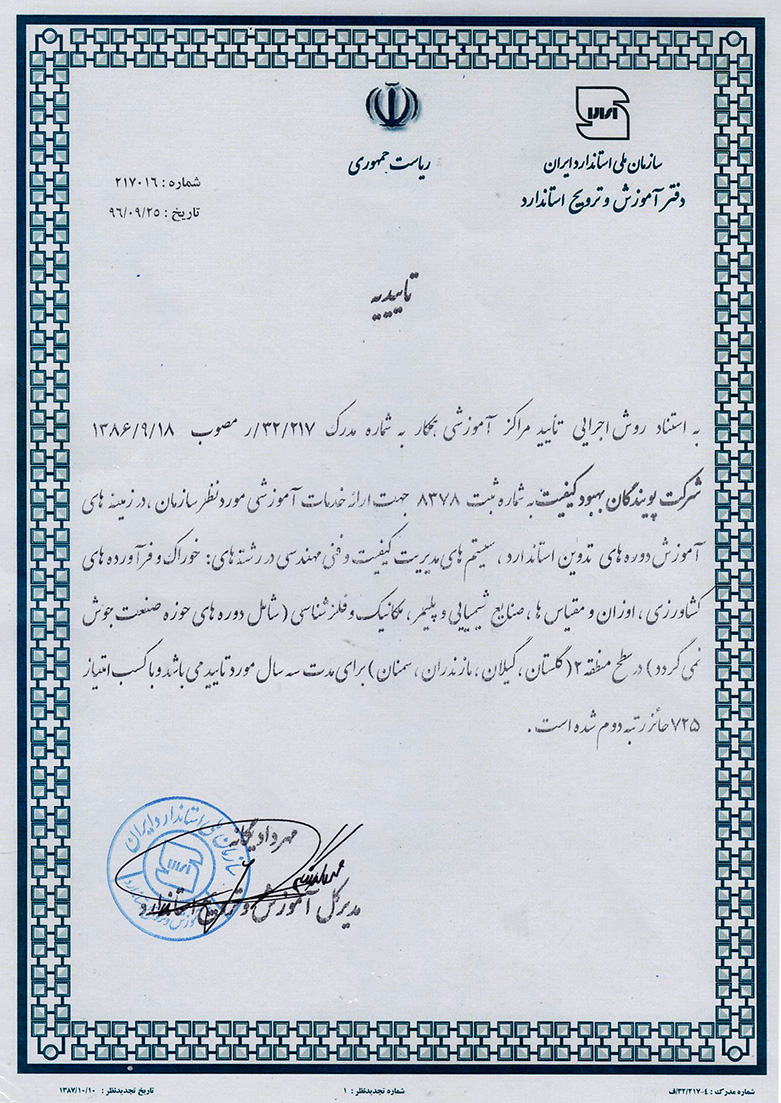 سازمان ملی استاندارد ایران
دفتر آموزش و ترویج استاندارد
ریاست جمهوری
شماره : ۲۱۷۰۱۶
تاریخ : ۹۶/۰۹/۲۵
تاییدیه
به استناد روش اجرایی تأیید مراکز آموزشی همکار به شماره مدرک ۳۲/۲۱۷/ر مصوب ۱۳۸۶/۹/۱۸
شرکت پویندگان بهبود کیفیت به شماره ثبت ۸۳۷۸ جهت ارائه خدمات آموزشی مورد نظر سازمان ، در زمینه های
آموزش دوره های تدوین استاندارد ، سیستم های مدیریت کیفیت و فنی مهندسی در رشته های : خوراک و فرآورده های
کشاورزی ، اوزان و مقیاس ها ، صنایع شیمیایی و پلیمر ، مکانیک و فلزشناسی ( شامل دوره های حوزه صنعت جوش
نمی گردد ) در سطح منطقه ۲ ( گلستان ، گیلان ، مازندران ، سمنان ) برای مدت سه سال مورد تایید می باشد و با کسب امتیاز
۷۲۵ حائز رتبه دوم شده است .
مهرداد یگانه
مدیرکل آموزش و ترویج استاندارد
سازمان ملی استاندارد ایران
شماره مدرک : ۴-۳۲/۲۱۷/ف
شماره تجدیدنظر : ۱
تاریخ تجدیدنظر : ۱۳۸۷/۱۰/۱۰